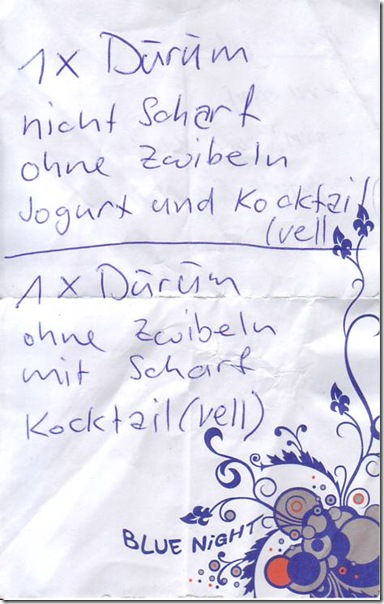 1x Dürüm
nicht Scharf
ohne Zwibeln
Jogurt und Kocktail
(vell
1x Dürüm
ohne Zwibeln
mit Scharf
Kocktail (vell)
BLUE NiGHT